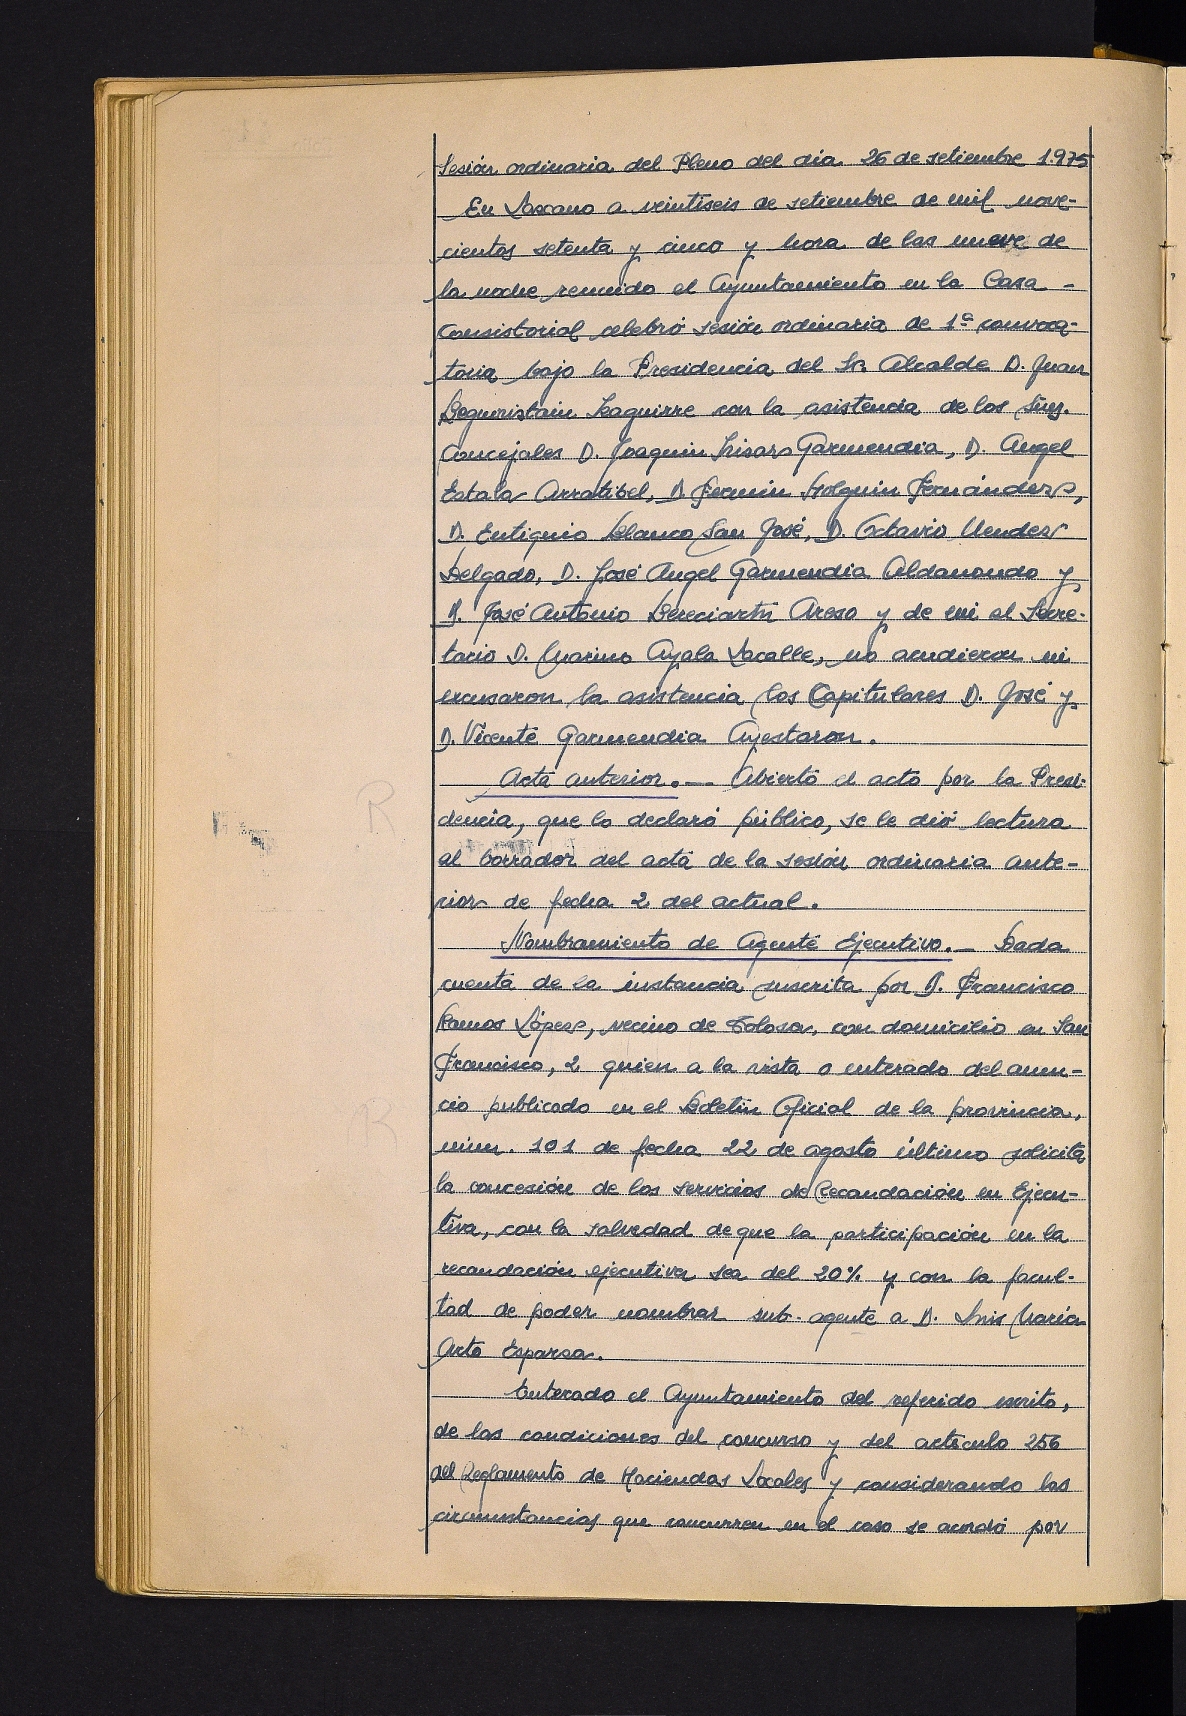 Sesión ordinaria del Pleno del día 26 de setiembre 1.975
En Lazcano a veintiseis de setiembre de mil nove-
cientos setenta y cinco y hora de las nueve de
la noche reunido el Ayuntamiento en la Casa -
Consistorial celebró sesión ordinaria de 1ª convoca-
toria bajo la Presidencia del Sr. Alcalde D. Juan
Beguiristain Izaguirre con la asistencia de los Sres.
Concejales D. Joaquin Irizar Garmendia, D. Angel
Estala Arratibel, D. Fermín Holguin Fernández,
D. Eutiquio Blanco San José, D. Octavio Mendez
Delgado, D. José Angel Garmendia Aldanondo y
D. José Antonio Bereciartu Areso y de mi el Secre-
tario D. Marino Ayala Lacalle, no acudieron ni
excusaron la asistencia los Capitulares D. José y
D. Vicente Garmendia Ayestaran.
Acta anterior.— Abierto el acto por la Presi-
dencia, que lo declaró público, se le dió lectura
al borrador del acta de la sesión ordinaria ante-
rior de fecha 2 del actual.
Nombramiento de Agente Ejecutivo.— Dada
cuenta de la instancia suscrita por D. Francisco
Ramos López, vecino de Tolosa, con domicilio en San
Francisco, 2 quien a la vista o enterado del anun-
cio publicado en el Boletín Oficial de la provincia,
núm. 101 de fecha 22 de agosto último solicita
la concesión de los servicios de Recaudación en Ejecu-
tiva, con la salvedad de que la participación en la
recaudación ejecutiva sea del 20% y con la facul-
tad de poder nombrar sub-agente a D. Luis María
Arto Esparza.
Enterado el Ayuntamiento del referido escrito,
de las condiciones del concurso y del artículo 256
del Reglamento de Haciendas Locales y considerando las
circunstancias que concurren en el caso se acordó por
R
R